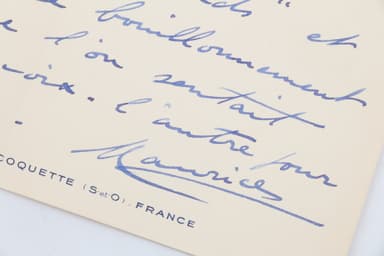 ds "
bouillonnement et
e l'on sentait
-oix. l'autre jour
Maurice
COQUETTE (S-et-O), FRANCE